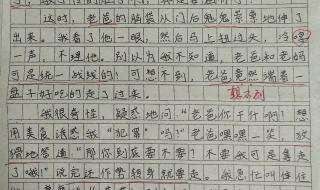 这时，老爸的脑袋从门后鬼鬼祟祟地伸了
出来。我看了他一眼，然后马上扭过头，冷哼
一声，不理他。别以为我不知道，老爸和老妈
可是统一战线的！可想不到，老爸竟然端着一
盘子好吃的走了过来。
想不到
我很奇怪，疑惑地问：“老爸你干什么啊？想
用美食诱惑我“犯罪”吗？”老爸嘿嘿一笑，狡
猾地答道：“那你到底要不要？不要我可是拿走
了哦！”说完还作势转身就要走。我急忙叫住住